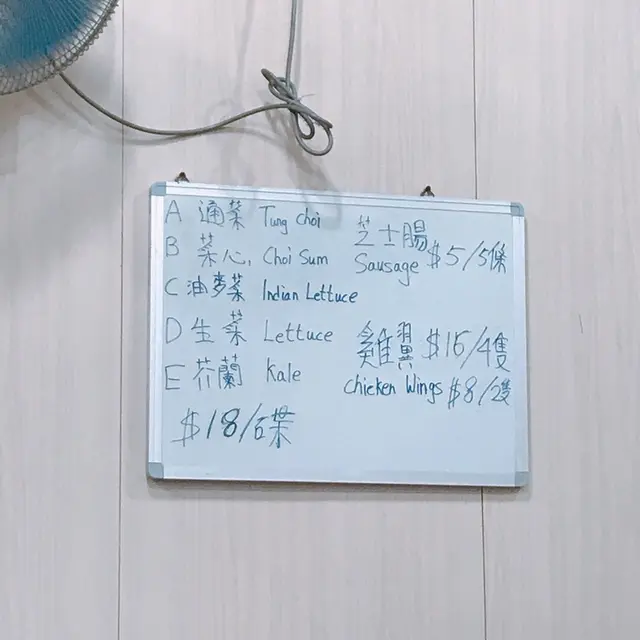 A 通菜 Tung choi
B 菜心 Choi Sum
C 油麥菜 Indian Lettuce
D 生菜 Lettuce
E 芥蘭 Kale
$18/碟
芝士腸
Sausage $5/5條
雞翼 $15/4隻
Chicken Wings $8/2隻